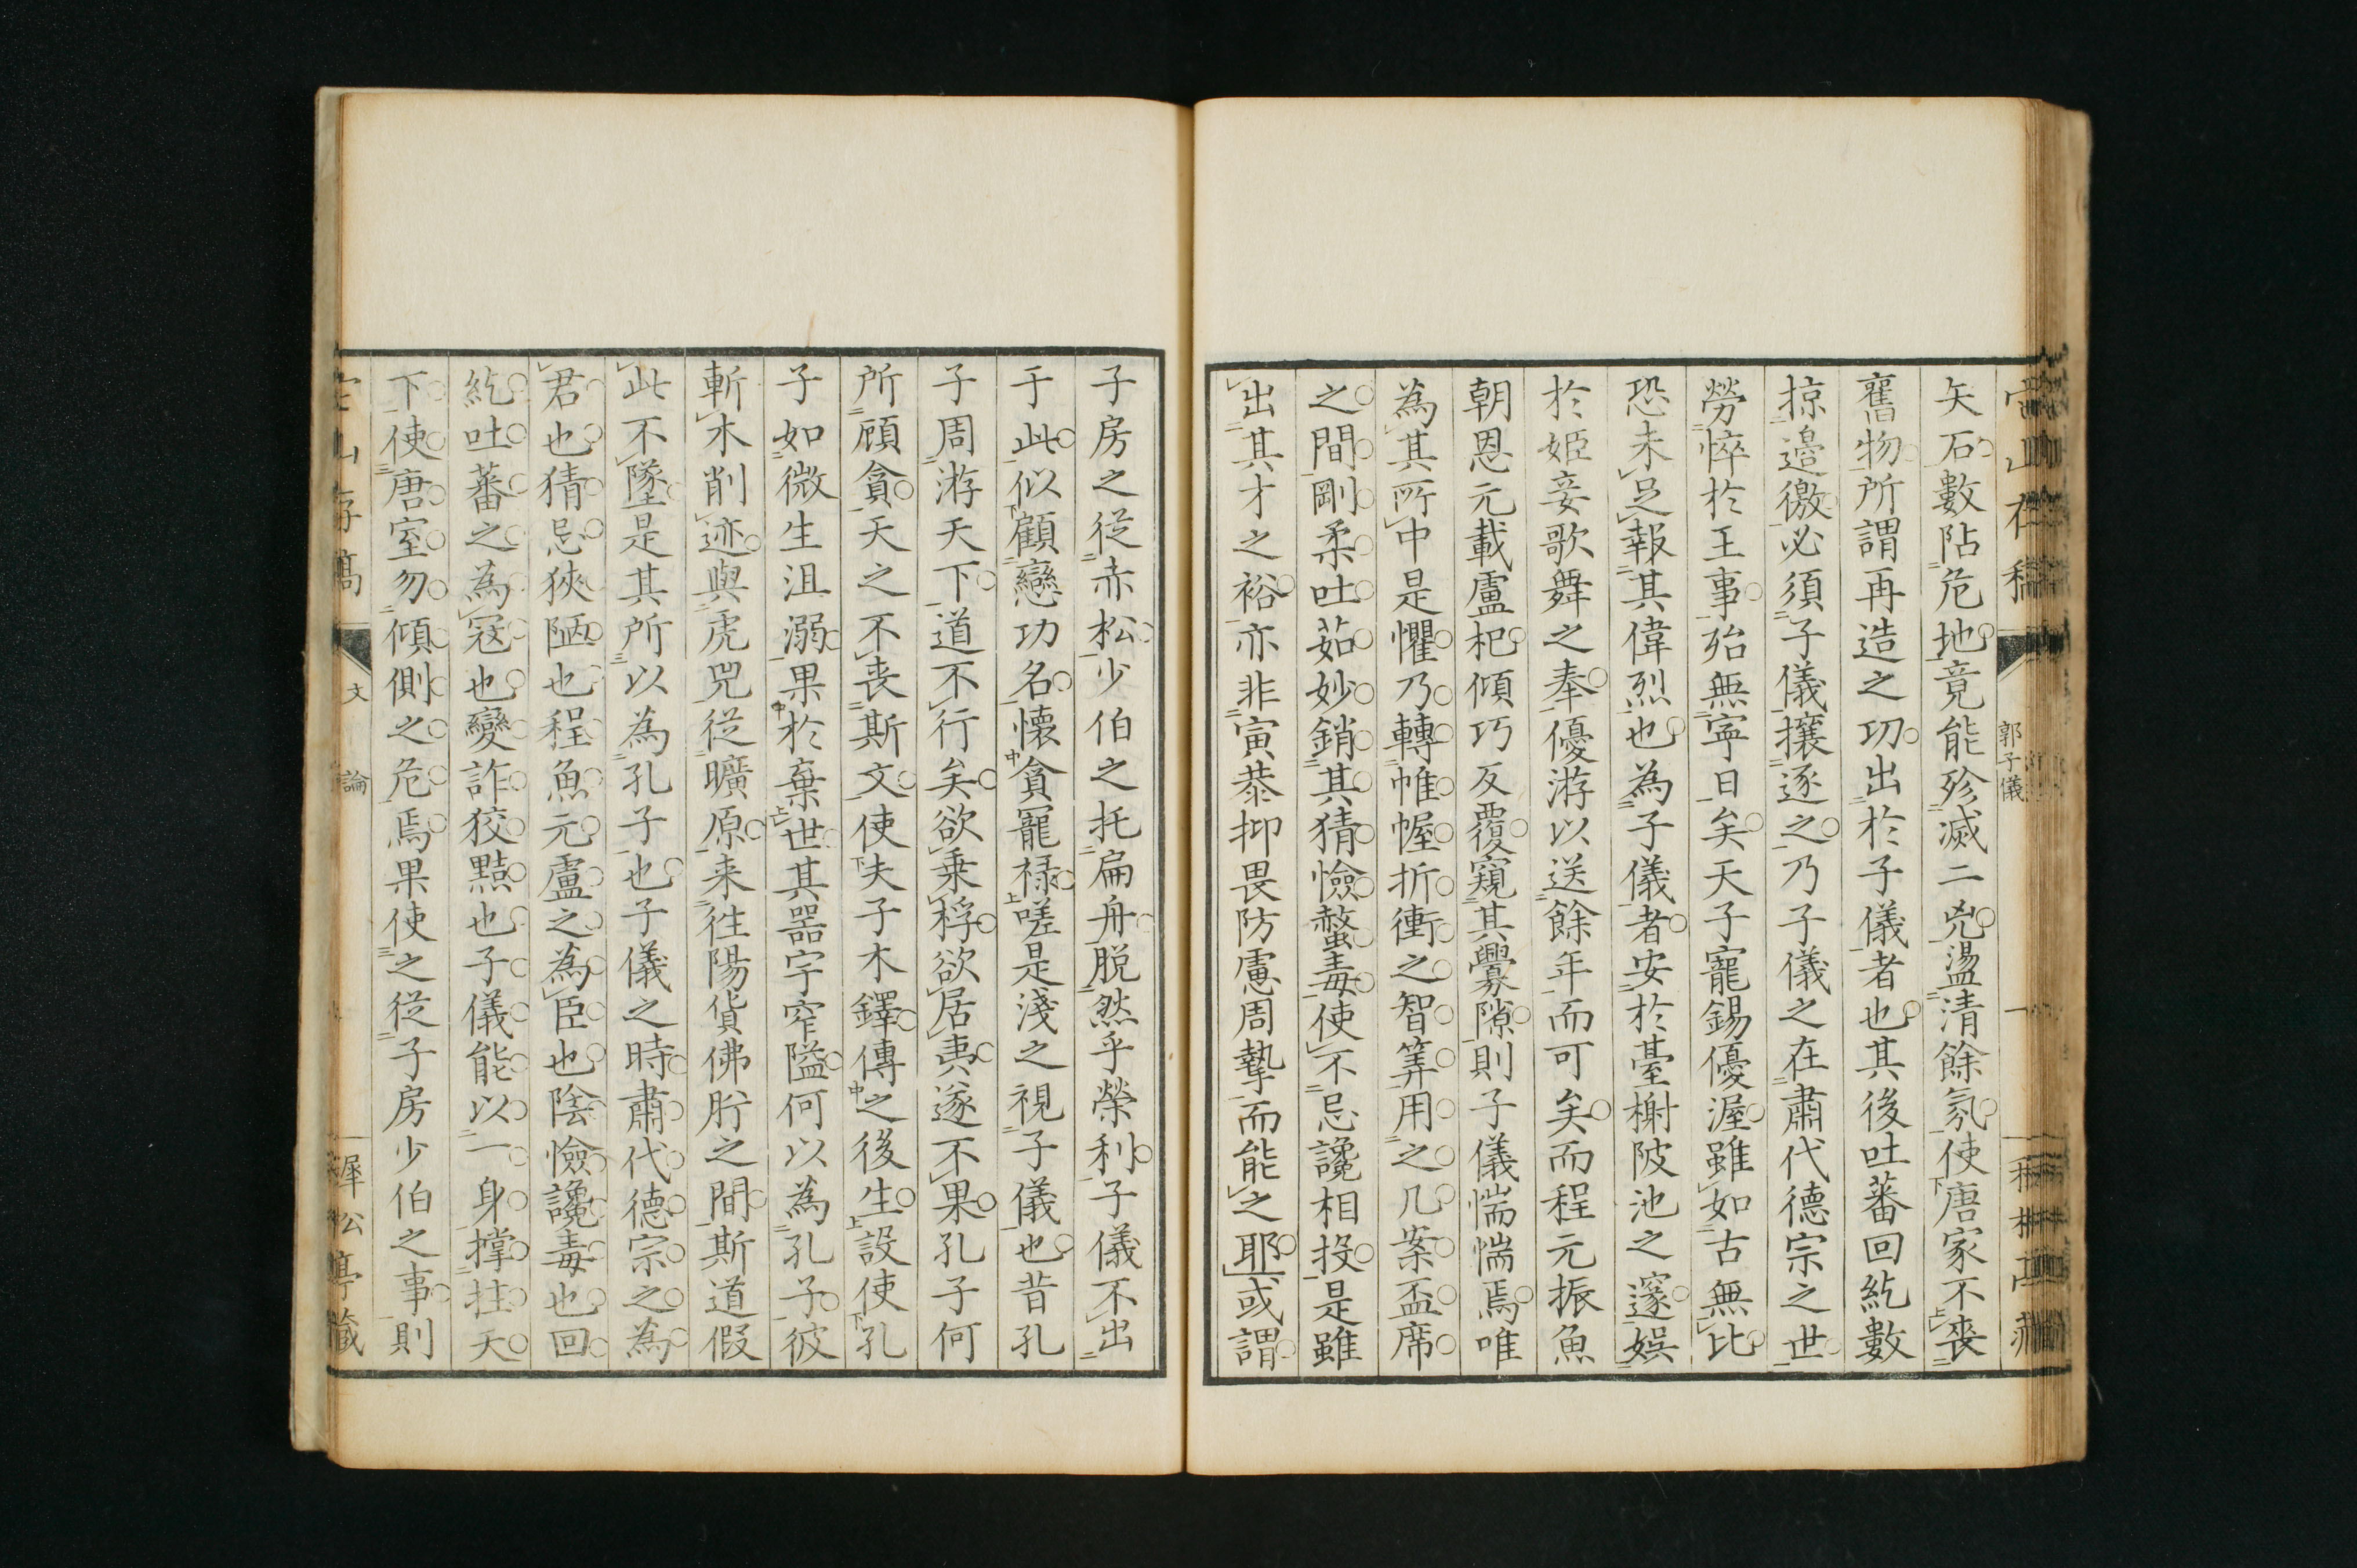 郭子儀
矢石數阽危地竟能殄滅二兇盪清餘氛使唐家不喪
舊物所謂再造之功出於子儀者也其後吐蕃回紇數
掠邉徼必須子儀攘逐之乃子儀之在肅代德宗之世
勞悴於王事殆無寧日矣天子寵錫優渥雖如古無比
恐未足報其偉烈也為子儀者安於臺榭陂池之邃娯
於姬妾歌舞之奉優游以送餘年而可矣而程元振魚
朝恩元載盧杞傾巧反覆窺其釁隙則子儀惴惴焉唯
為其所中是懼乃轉帷幄折衝之智筭用之几案盃席
之間剛柔吐茹妙銷其猜憸螫毒使不忌讒相投是雖
出其才之裕亦非寅恭抑畏防慮周摯而能之耶或謂
子房之從赤松少伯之托扁舟脱然乎榮利子儀不出
于此似顧戀功名懷貪寵禄嗟是淺之視子儀也昔孔
子周游天下道不行矣欲乗桴欲居夷遂不果孔子何
所顧貪天之不丧斯文使夫子木鐸傳之後生設使孔
子如微生沮溺果於棄世其器宇窄隘何以為孔子彼
斬木削迹與虎兕從曠原来徃陽貨佛肸之間斯道假
此不墜是其所以為孔子也子儀之時肅代德宗之為
君也猜忌狹陋也程魚元盧之為臣也陰憸讒毒也回
紇吐蕃之為冦也變詐狡黠也子儀能以一身撑拄天
下使唐室勿傾側之危焉果使之従子房少伯之事則
山存稾
文
論
犀松亭藏